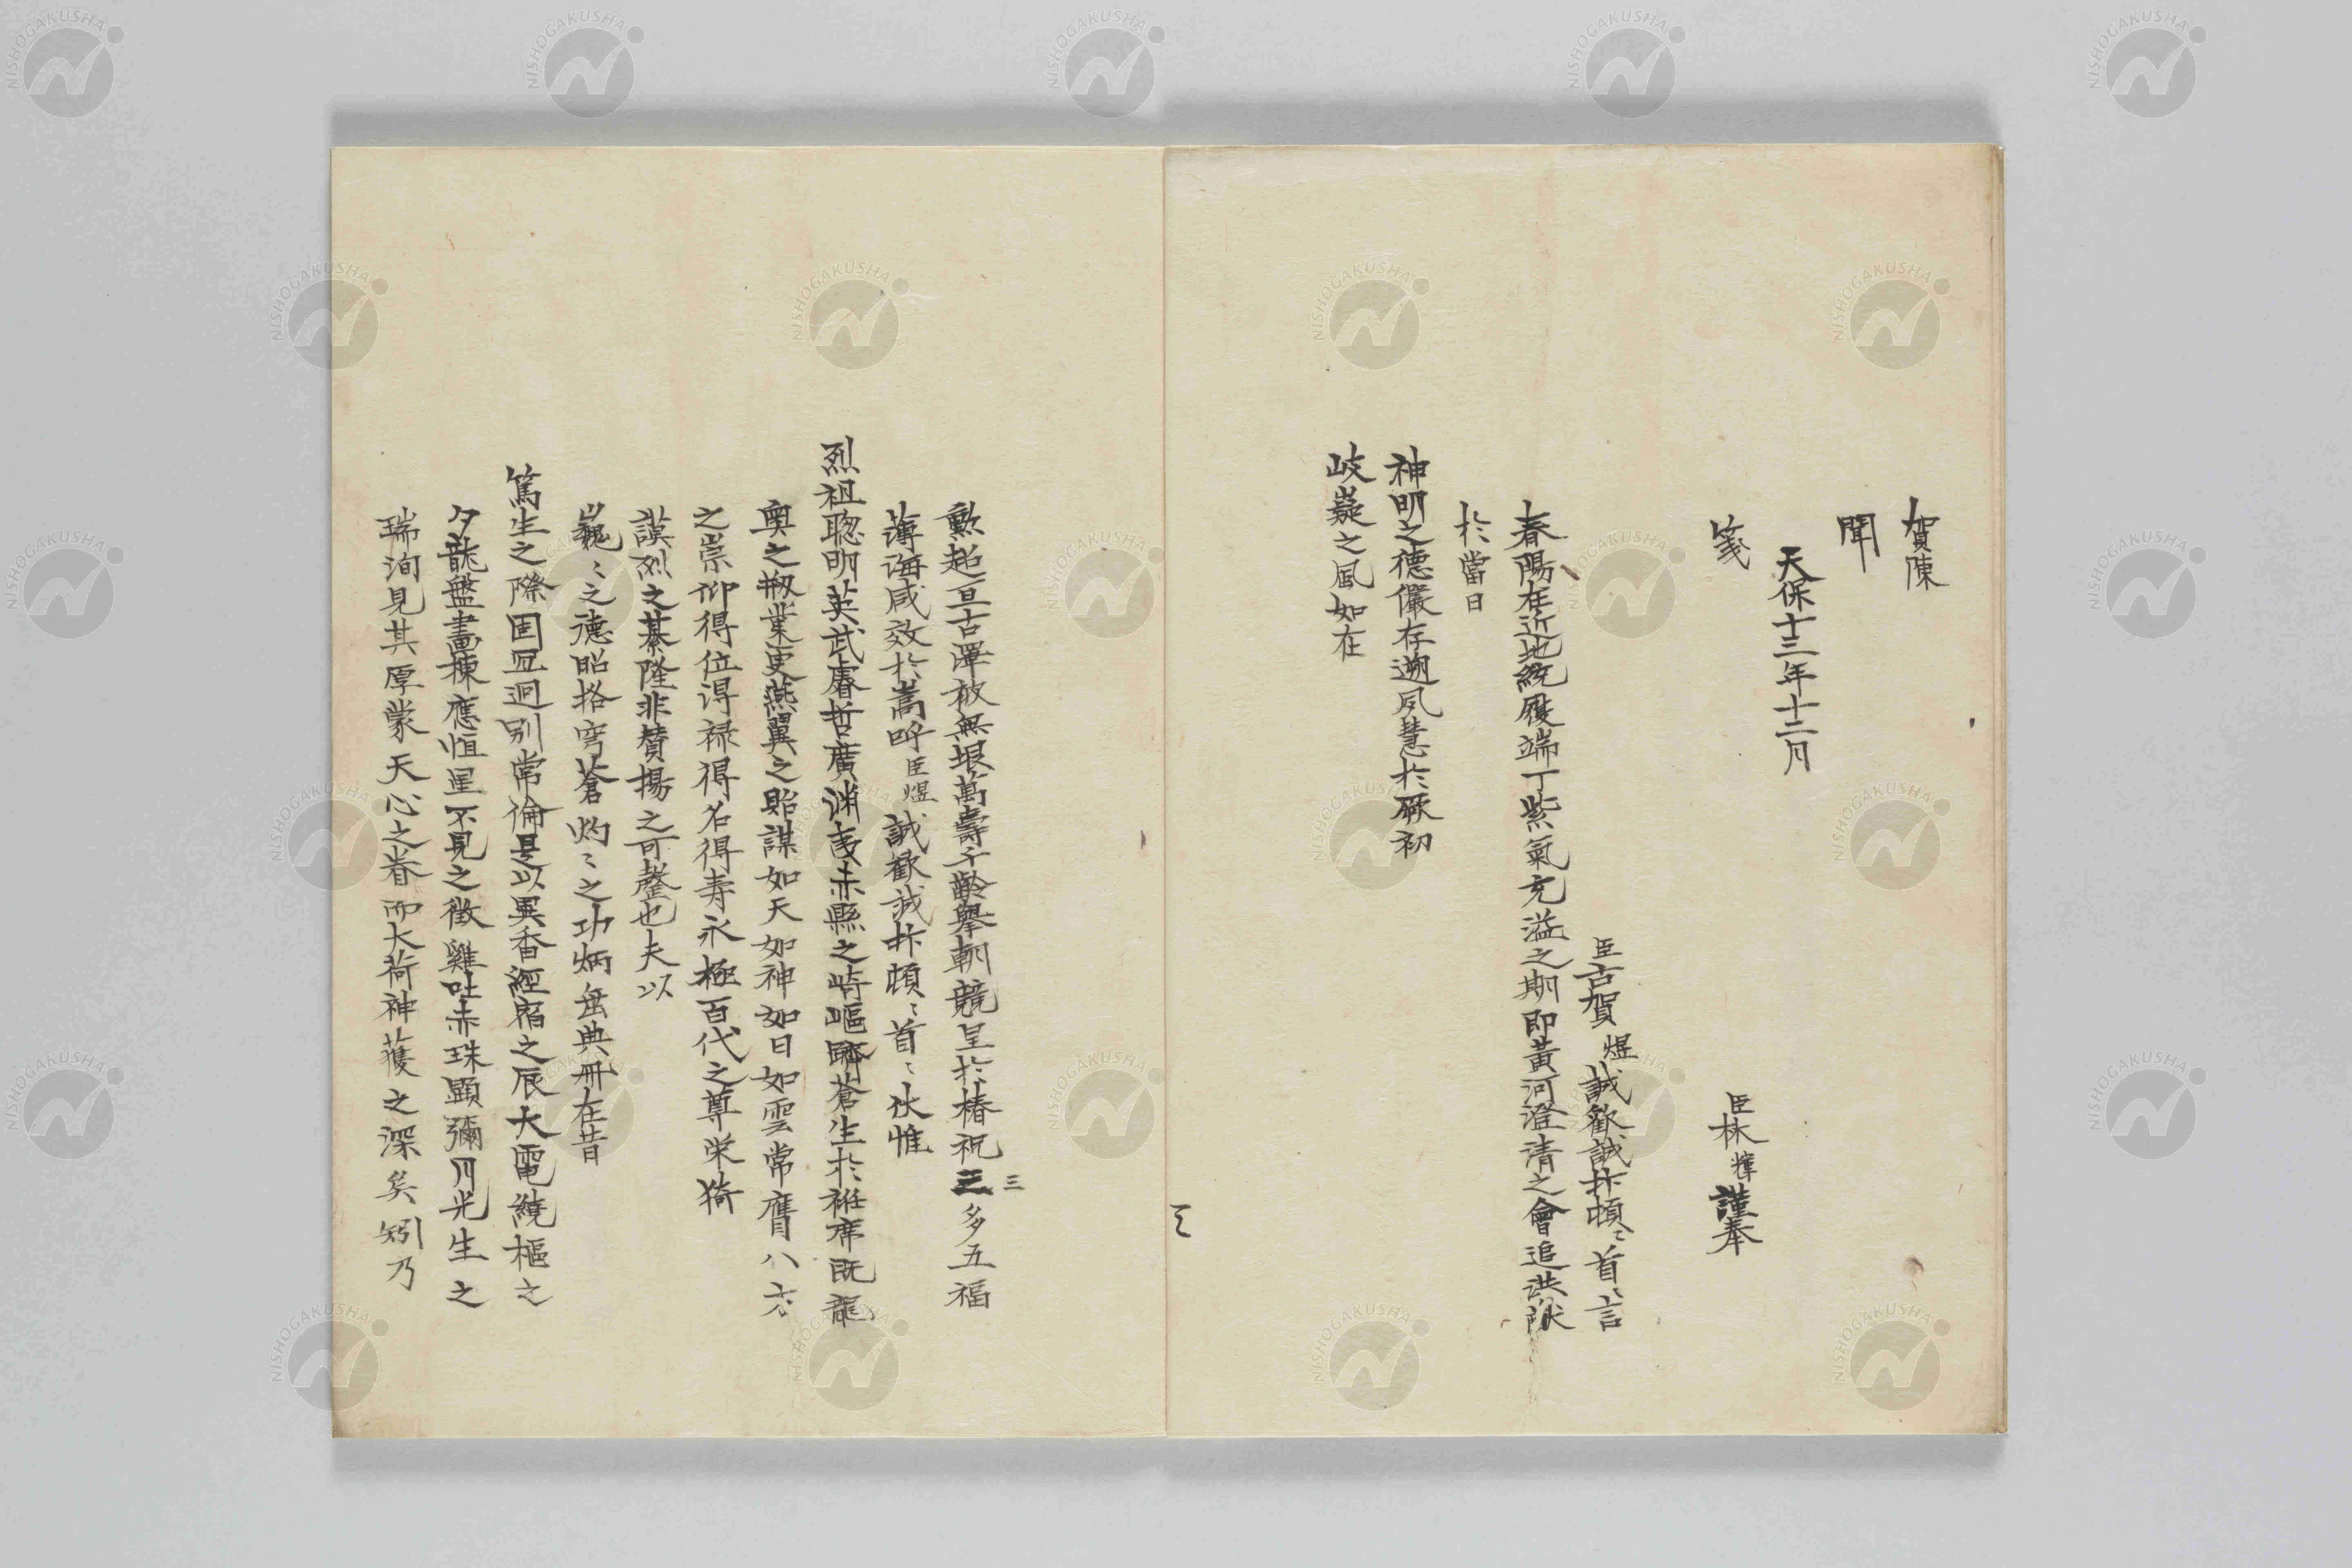 賀陳
聞
天保十三年十二月
臣林煒謹奉
箋
臣古賀煜誠歡誠抃頓〻首〻言
春陽在近地統履端丁紫氣充溢之期即黄河澄清之會追洪
於當日
神明之德儼存遡夙慧於厥初
岐嶷之風如在
三
勲超亘古澤被無垠萬壽千齡擧朝競呈於椿祝三多五福
三
薄海咸效於嵩呼臣煜誠歡誠抃頓〻首〻伏惟
烈祖聰明英武睿哲廣渊赤縣之崎嶇躋蒼生於袵席既龍
奧之剏業更燕翼之貽謀如天如神如日如雲常膺八方
之崇仰得位得禄得名得寿永極百代之尊栄猗
謨烈之綦隆非賛揚之可罄也夫以
巍〻之德昭格穹蒼灼〻之功炳垂典冊在昔
篤生之際固迥別常倫是以異香經宿之辰大電繞樞之
夕龍盤畵棟應恒星不見之徴雞吐赤珠顕彌月光生之
瑞洵見其厚蒙天心之眷而大荷神護之深矣矧乃
NISHOGAKUSHA